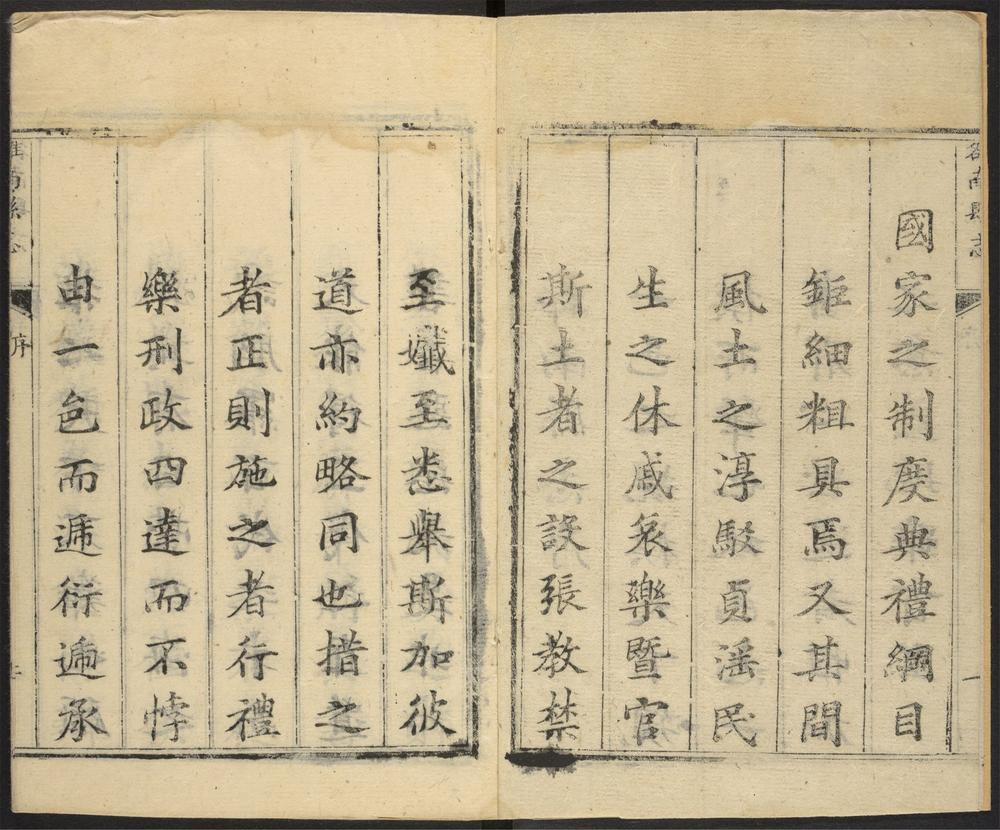 南縣志
一
國家之制度典禮綱目
鉅細粗具焉又其間
風土之淳駁貞滛民
生之休戚哀樂暨官
斯土者之設張教禁
至孅至悉舉斯加彼
道亦約略同也措之
者正則施之者行禮
樂刑政四達而不悖
由一邑而遞衍遞承
南縣志
序